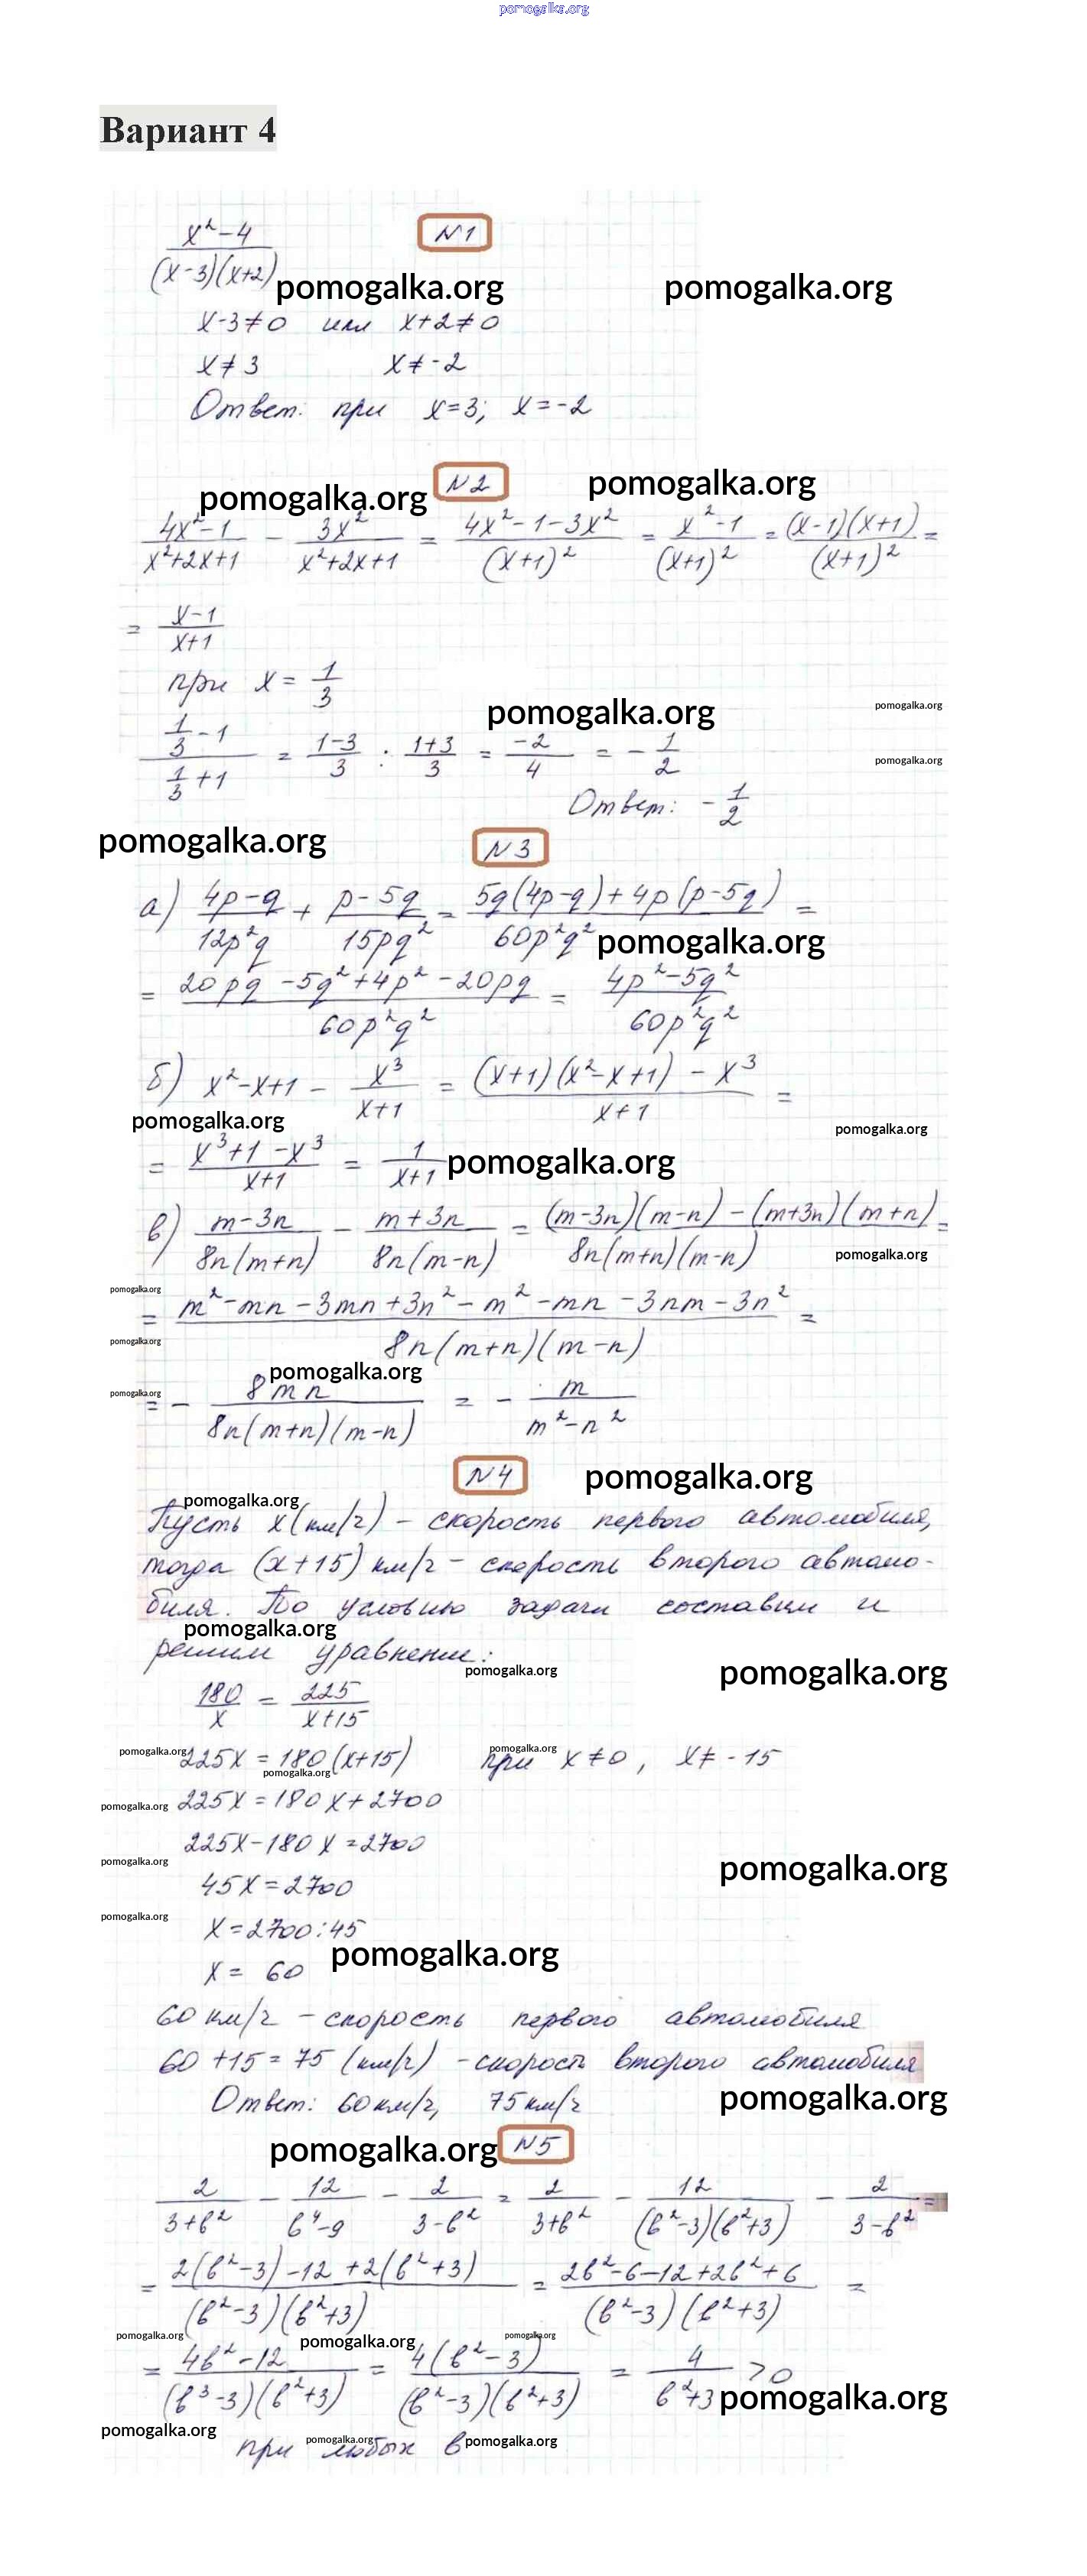 pomogalka.org
Вариант 4
N1
x²-4/(x-3)(x+2)
pomogalka.org pomogalka.org
x-3≠0 или x+2≠0
x≠3 x≠-2
Ответ: при x=3; x=-2
N2
pomogalka.org pomogalka.org
4x²-1/x²+2x+1 - 3x²/x²+2x+1 = 4x²-1-3x²/(x+1)² = x²-1/(x+1)² = (x-1)(x+1)/(x+1)² =
= x-1/x+1
при x = 1/3
pomogalka.org pomogalka.org
1/3-1 / 1/3+1 = 1-3/3 : 1+3/3 = -2/4 = -1/2
pomogalka.org
Ответ: -1/2
pomogalka.org
N3
а) 4p-q/12p²q + p-5q/15pq² = 5q(4p-q)+4p(p-5q)/60p²q² =
pomogalka.org
= 20pq-5q²+4p²-20pq/60p²q² = 4p²-5q²/60p²q²
б) x²-x+1 - x³/x+1 = (x+1)(x²-x+1)-x³/x+1 =
pomogalka.org pomogalka.org
= x³+1-x³/x+1 = 1/x+1
pomogalka.org
в) m-3n/8n(m+n) - m+3n/8n(m-n) = (m-3n)(m-n)-(m+3n)(m+n)/8n(m+n)(m-n) =
pomogalka.org
pomogalka.org
= m²-mn-3mn+3n²-m²-mn-3nm-3n²/8n(m+n)(m-n) =
pomogalka.org
pomogalka.org
pomogalka.org
= - 8mn/8n(m+n)(m-n) = - m/m²-n²
N4
pomogalka.org
pomogalka.org
Пусть x(км/ч) - скорость первого автомобиля,
тогда (x+15) км/ч - скорость второго автомо-
биля. По условию задачи составим и
pomogalka.org
решим уравнение:
pomogalka.org pomogalka.org
180/x = 225/x+15
pomogalka.org pomogalka.org
225x = 180(x+15) при x≠0, x≠-15
pomogalka.org
pomogalka.org
225x = 180x+2700
225x-180x=2700
pomogalka.org pomogalka.org
45x=2700
pomogalka.org
x=2700:45
pomogalka.org
x= 60
60 км/ч - скорость первого автомобиля
60+15=75 (км/ч) - скорость второго автомобиля
Ответ: 60 км/ч, 75 км/ч
pomogalka.org
pomogalka.org
N5
2/3+b² - 12/b⁴-9 - 2/3-b² = 2/3+b² - 12/(b²-3)(b²+3) - 2/3-b² =
= 2(b²-3)-12+2(b²+3)/(b²-3)(b²+3) = 2b²-6-12+2b²+6/(b²-3)(b²+3) =
pomogalka.org pomogalka.org pomogalka.org
= 4b²-12/(b³-3)(b²+3) = 4(b²-3)/(b²-3)(b²+3) = 4/b²+3 >0
pomogalka.org
pomogalka.org pomogalka.org pomogalka.org
при любых b